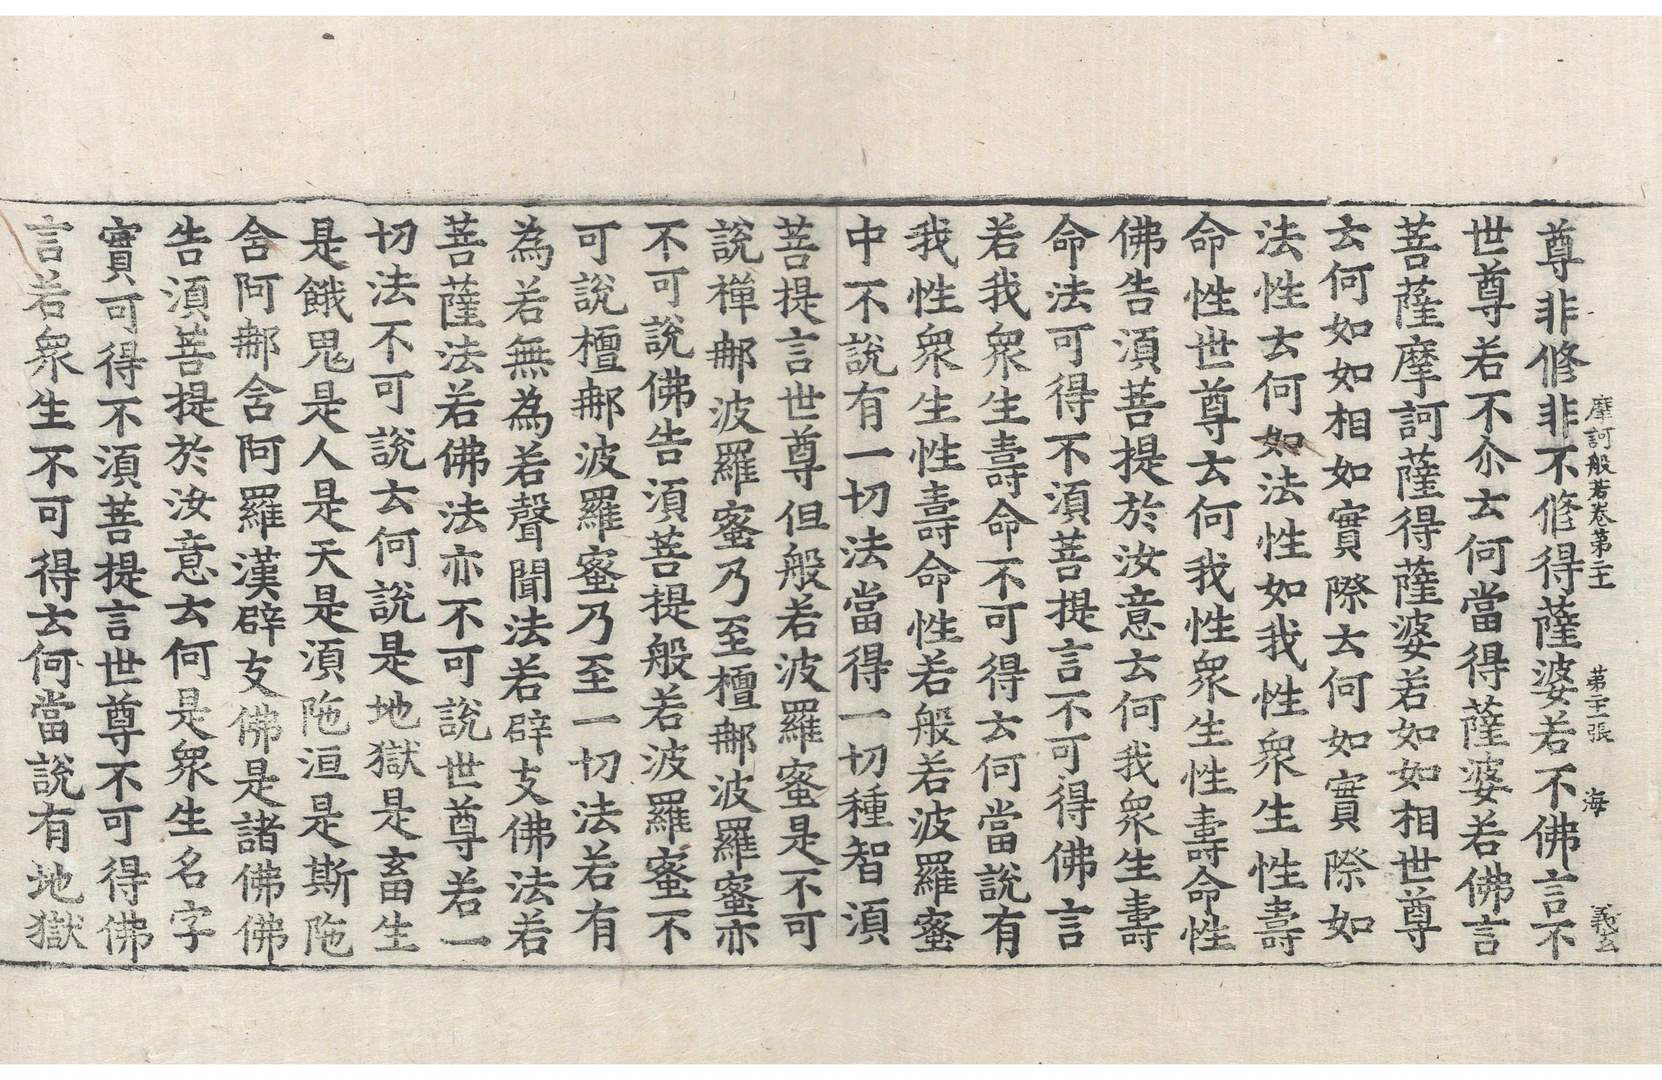 摩訶般若卷第二十一 第二十一張 海 義玄
尊非修非不修得薩婆若不佛言不
世尊若不尒云何當得薩婆若佛言
菩薩摩訶薩得薩婆若如如相世尊
云何如如相如實際云何如實際如
法性云何如法性如我性眾生性壽
命性世尊云何我性眾生性壽命性
佛告湏菩提於汝意云何我眾生壽
命法可得不湏菩提言不可得佛言
若我眾生壽命不可得云何當說有
我性眾生性壽命性若般若波羅蜜
中不說有一切法當得一切種智湏
菩提言世尊但般若波羅蜜是不可
說禪䣯波羅蜜乃至檀䣯波羅蜜亦
不可說佛告湏菩提般若波羅蜜不
可說檀䣯波羅蜜乃至一切法若有
為若無為若聲聞法若辟支佛法若
菩薩法若佛法亦不可說世尊若一
切法不可說云何說是地獄是畜生
是餓鬼是人是天是湏陁洹是斯陁
含阿䣯含阿羅漢辟支佛是諸佛佛
告湏菩提於汝意云何是眾生名字
實可得不湏菩提言世尊不可得佛
言若眾生不可得云何當說有地獄